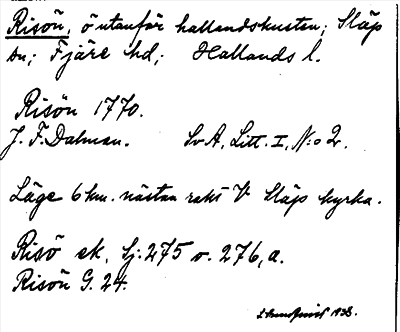 Risön, ö utanför hallandskusten; Släp
sn; Fjäre hd; Hallands l.
Risön 1770.
J. F. Dalman. Sv A, Litt. I, N:o 2.
Läge 6 km. nästan rakt V Släp kyrka.
Risö ek, Sj. 275 o. 276, a.
Risön G. 24.
1938.